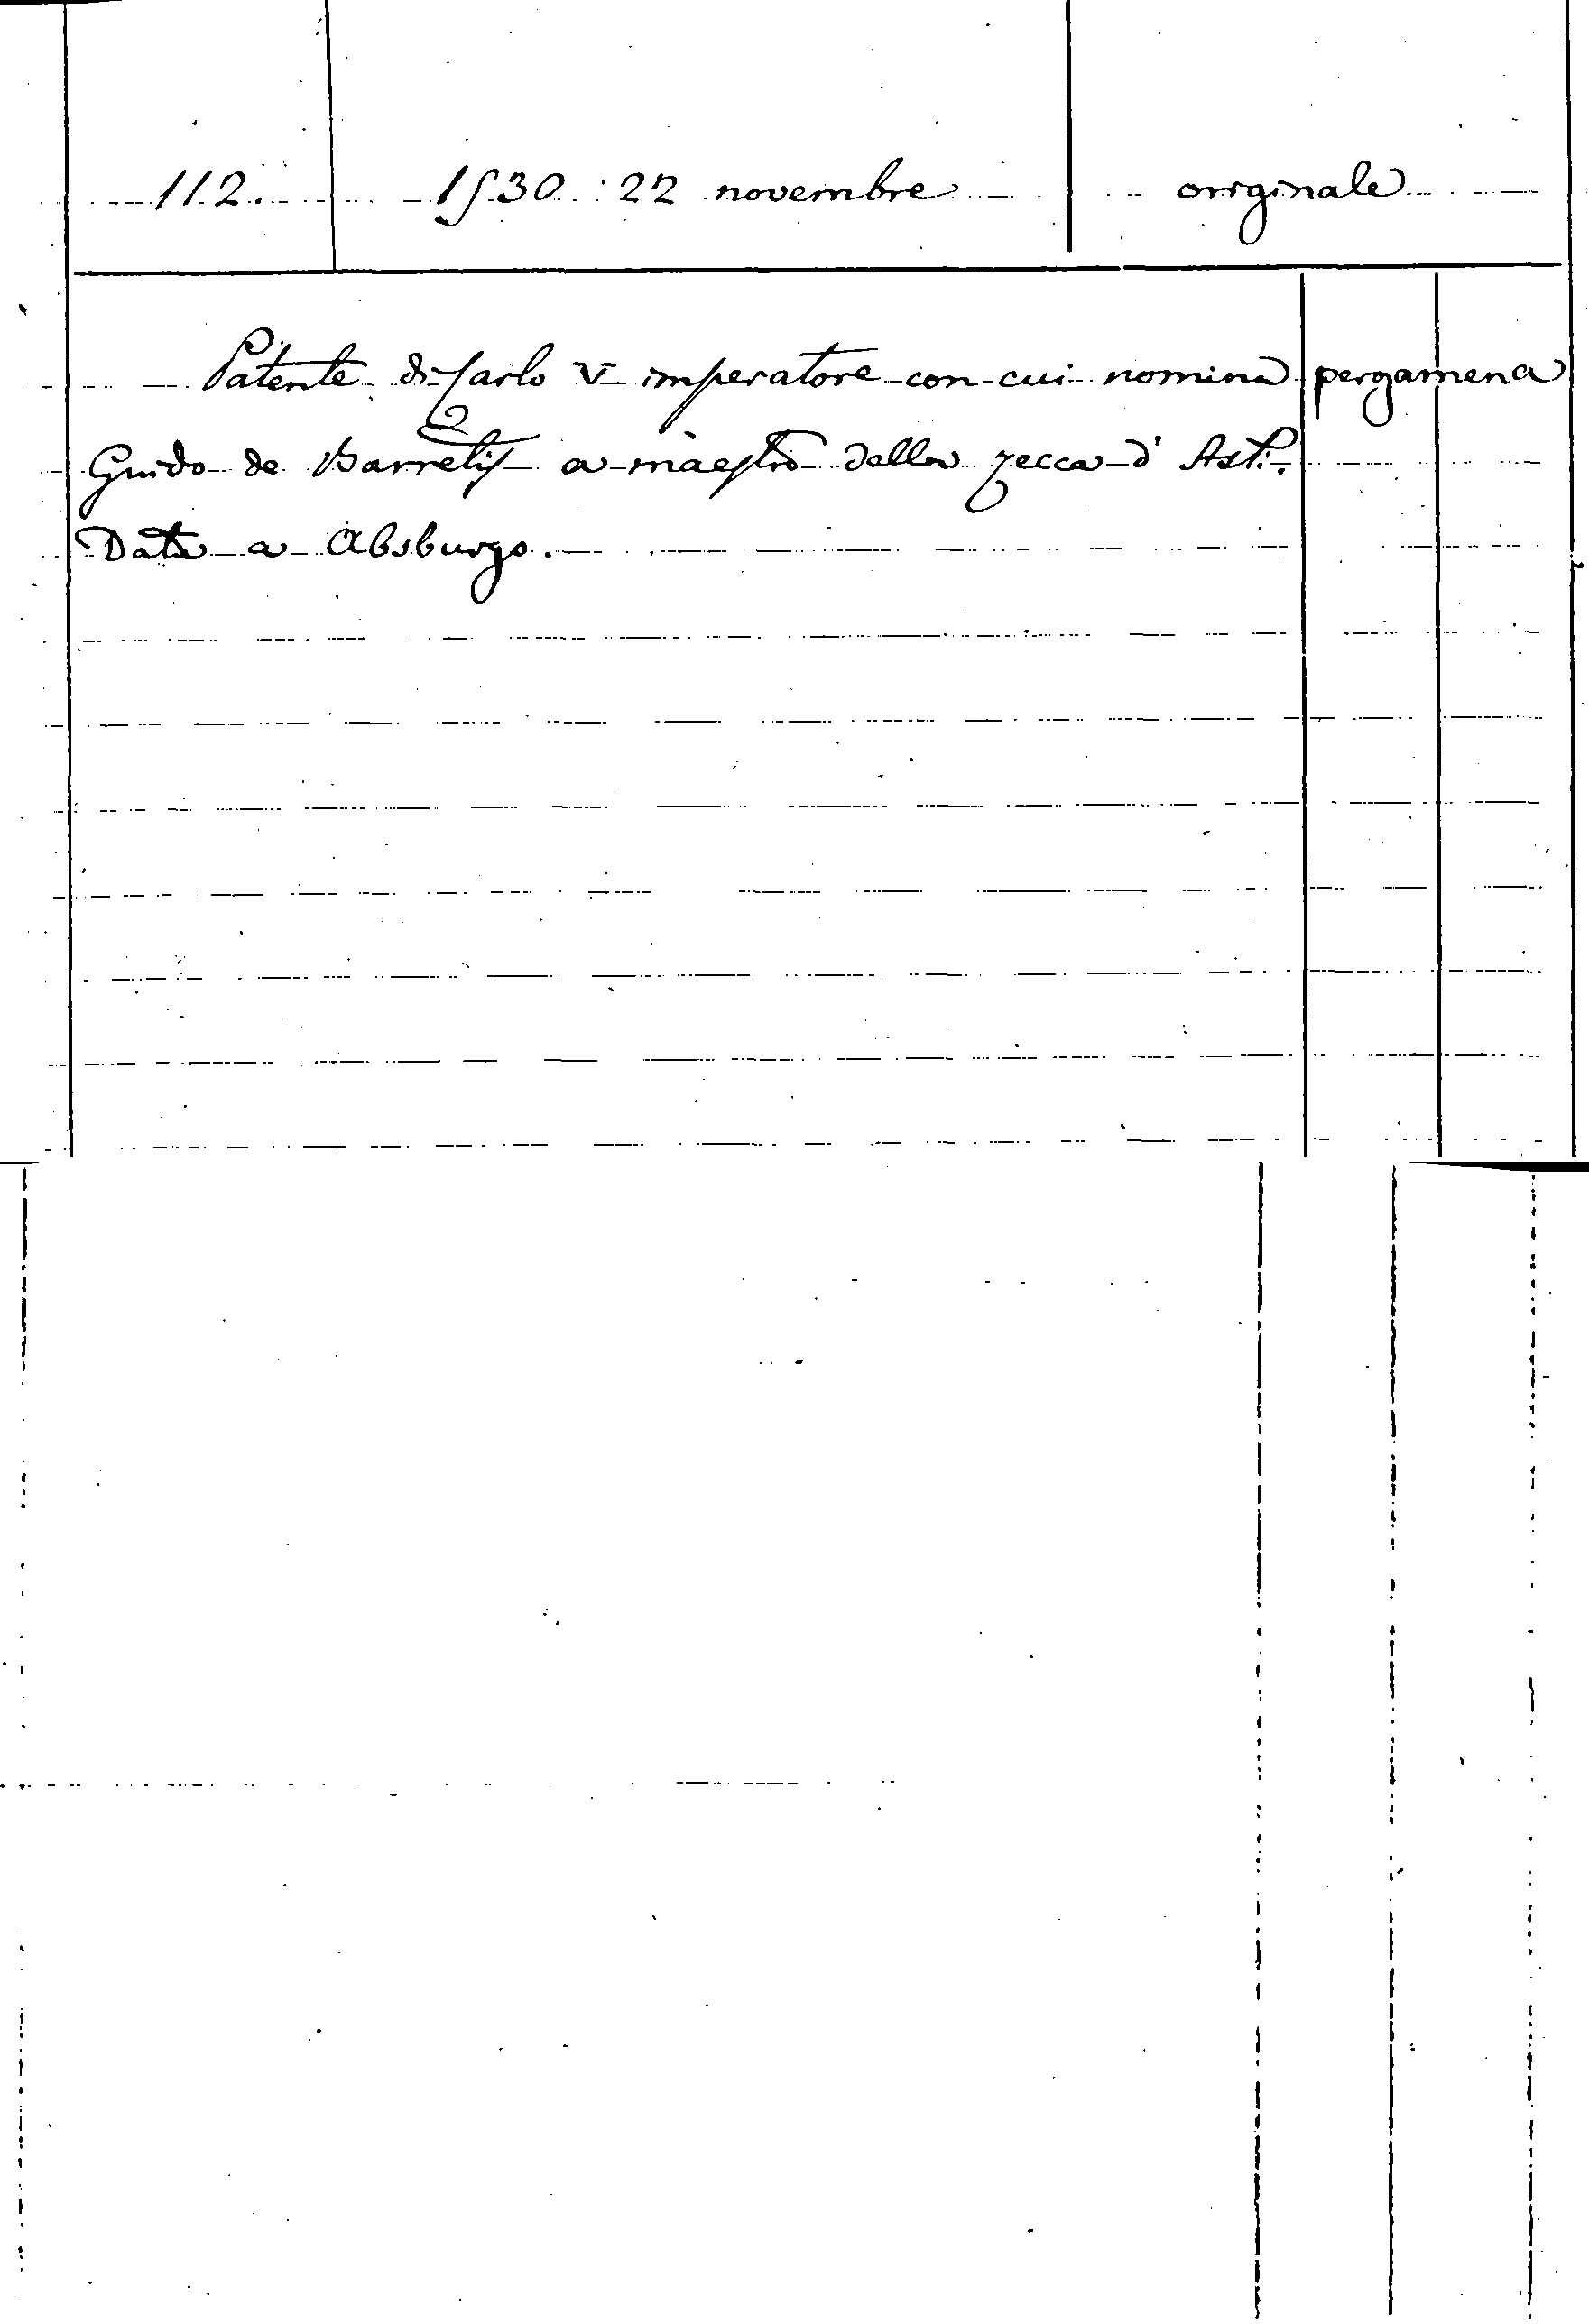 112. 1530 22 novembre originale
Patente di Carlo V imperatore con cui nomina pergamena
Guido de Barretis a maestro della zecca d' Asti.
Data a Absburgo.